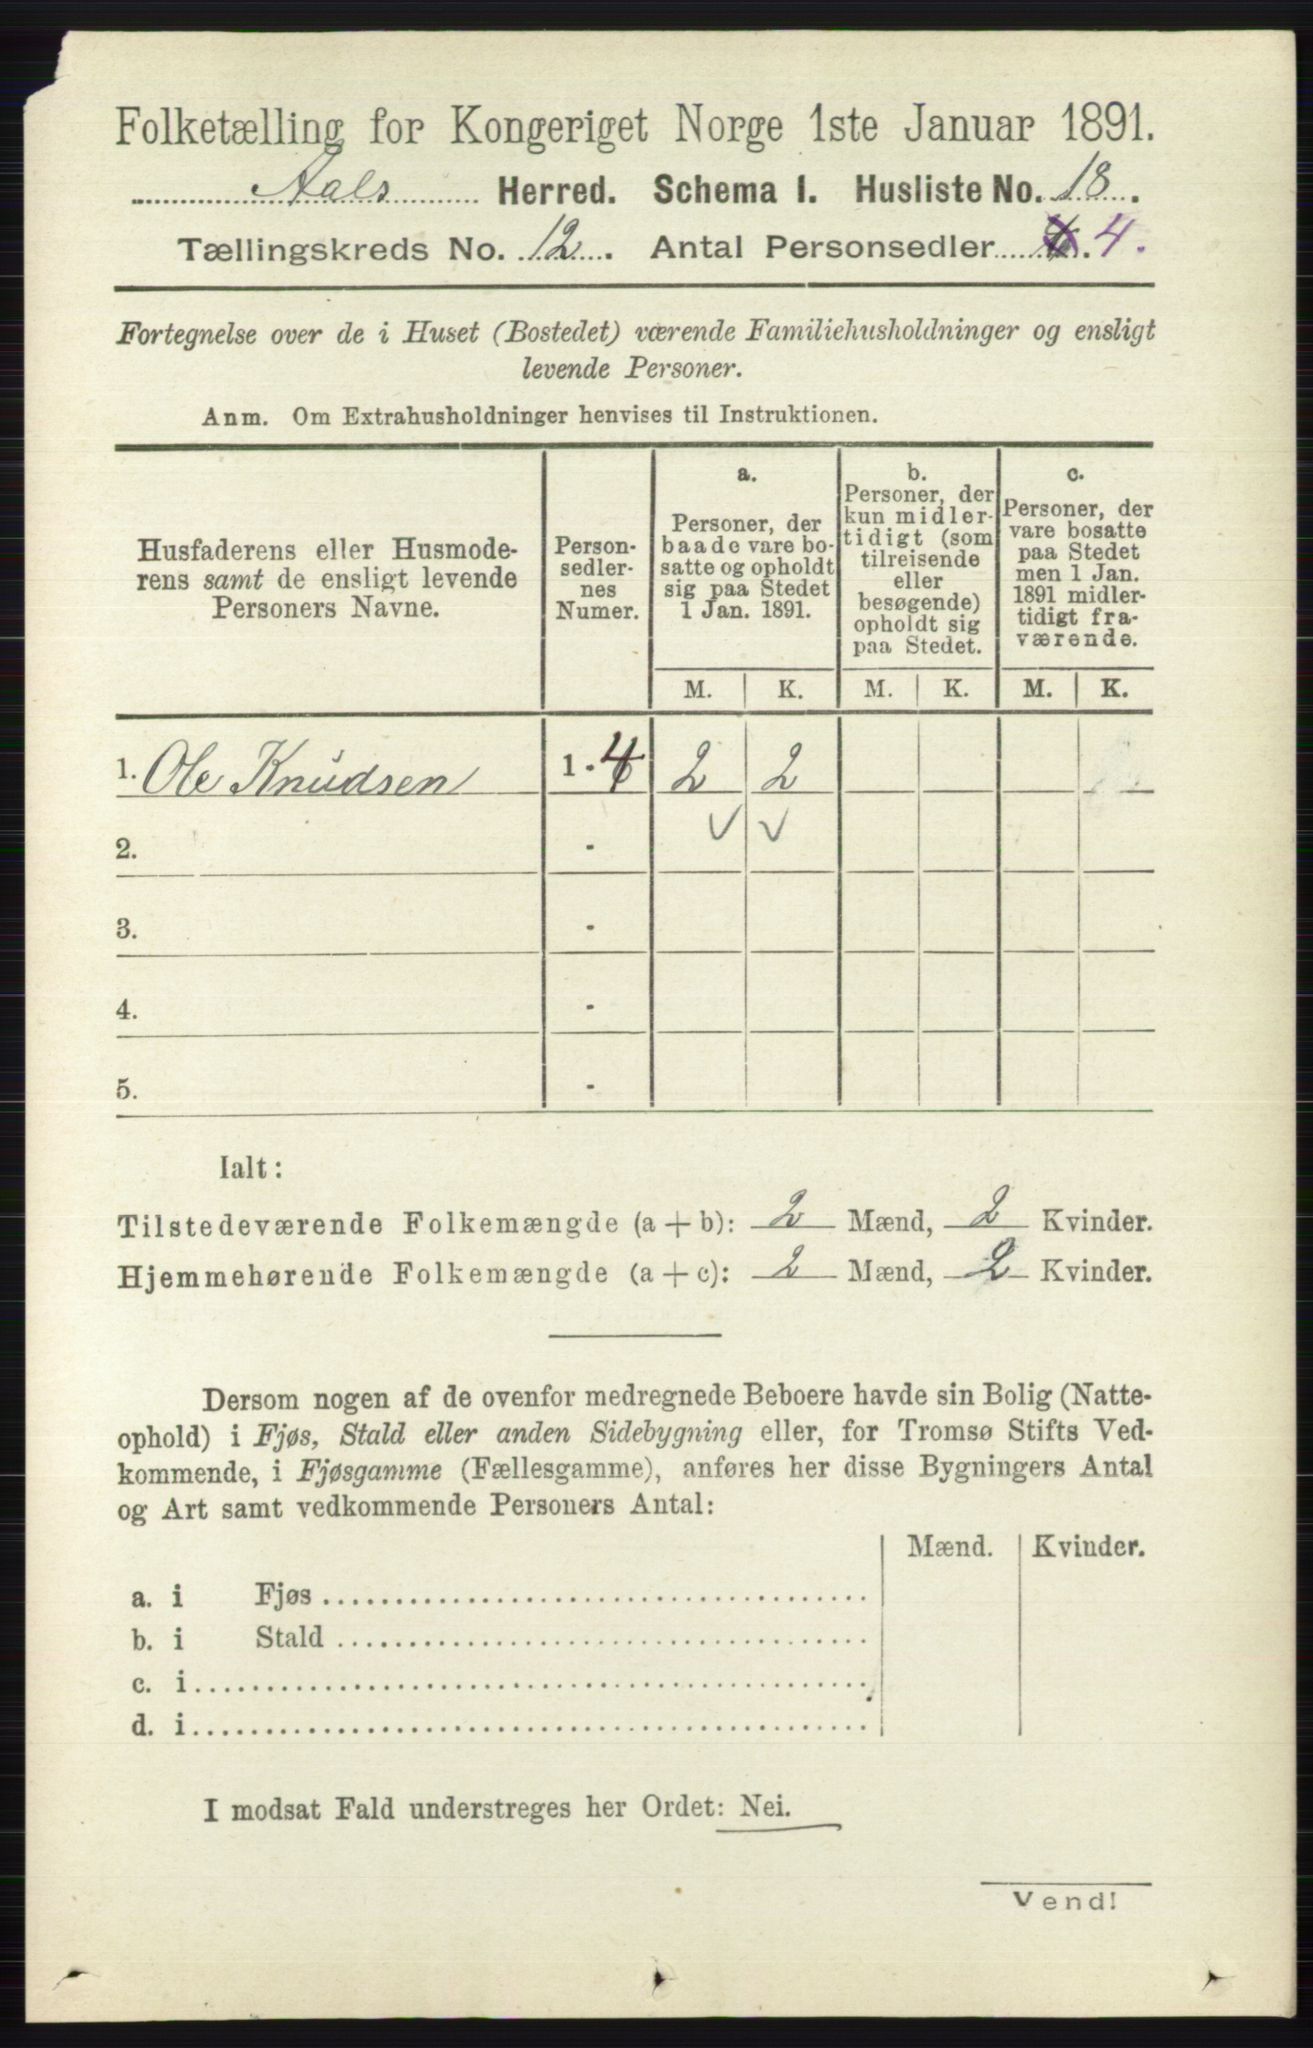 Folketælling for Kongeriget Norge 1ste Januar 1891.
Aals Herred. Schema I. Husliste No. 18.
Tællingskreds No. 12. Antal Personsedler 4.
Fortegnelse over de i Huset (Bostedet) værende Familiehusholdninger og ensligt
levende Personer.
Anm. Om Extrahusholdninger henvises til Instruktionen.
Husfaderens eller Husmode-
rens samt de ensligt levende
Personers Navne.
Person-
sedler-
nes
Numer.
a.
Personer, der
baade vare bo-
satte og opholdt
sig paa Stedet
1 Jan. 1891.
b.
Personer, der
kun midler-
tidigt (som
tilreisende
eller
besøgende)
opholdt sig
paa Stedet.
c.
Personer, der
vare bosatte
paa Stedet
men 1 Jan.
1891 midler-
tidigt fra-
værende.
M. K. M. K. M. K.
1. Ole Knudsen 1 - 4 2 2
2. -
3. -
4. -
5. -
Ialt:
Tilstedeværende Folkemængde (a + b): 2 Mænd, 2 Kvinder.
Hjemmehørende Folkemængde (a + c): 2 Mænd, 2 Kvinder.
Dersom nogen af de ovenfor medregnede Beboere havde sin Bolig (Natte-
ophold) i Fjøs, Stald eller anden Sidebygning eller, for Tromsø Stifts Ved-
kommende, i Fjøsgamme (Fællesgamme), anføres her disse Bygningers Antal
og Art samt vedkommende Personers Antal:
Mænd. Kvinder.
a. i Fjøs
b. i Stald
c. i
d. i
I modsat Fald understreges her Ordet: Nei.
Vend!